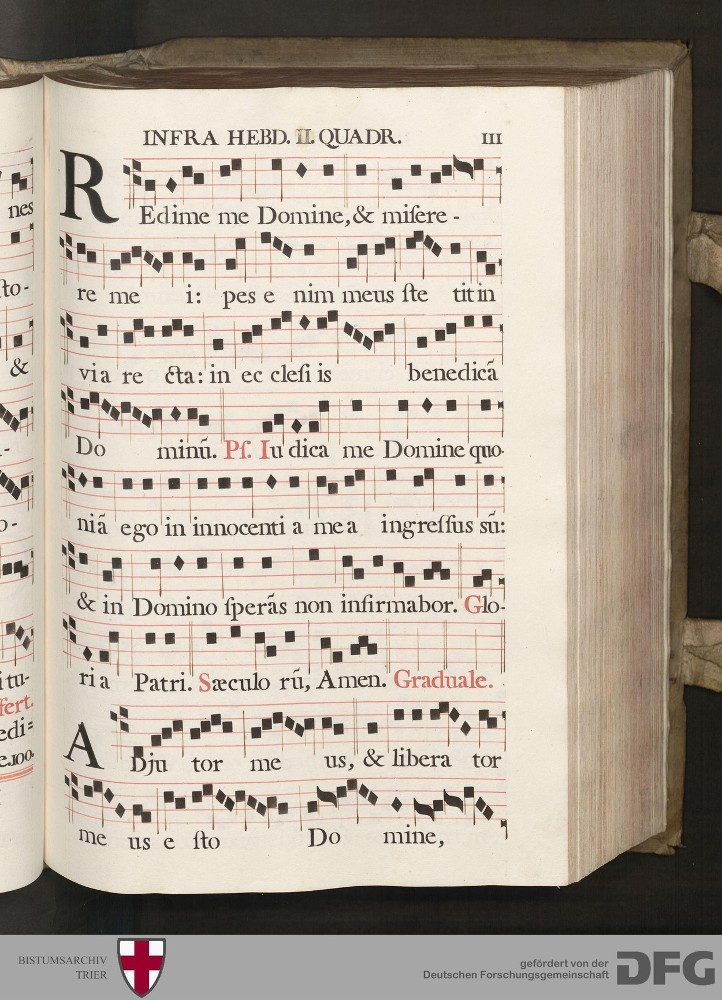 INFRA HEBD. II. QUADR. III
REdime me Domine, & miſere-
re me i: pes e nim meus ſte tit in
via re cta: in ec cleſi is benedicã
Do minũ. Pſ. Iu dica me Domine quo-
niã ego in innocenti a me a ingreſſus sũ:
& in Domino ſperãs non infirmabor. Glo-
ri a Patri. Sæculo rũ, Amen. Graduale.
ADju tor me us, & libera tor
me us e ſto Do mine,
nes
ſto-
&
o-
i tu-
fert.
edi=
e.100.
BISTUMSARCHIV
TRIER
gefördert von der
Deutschen Forschungsgemeinschaft
DFG